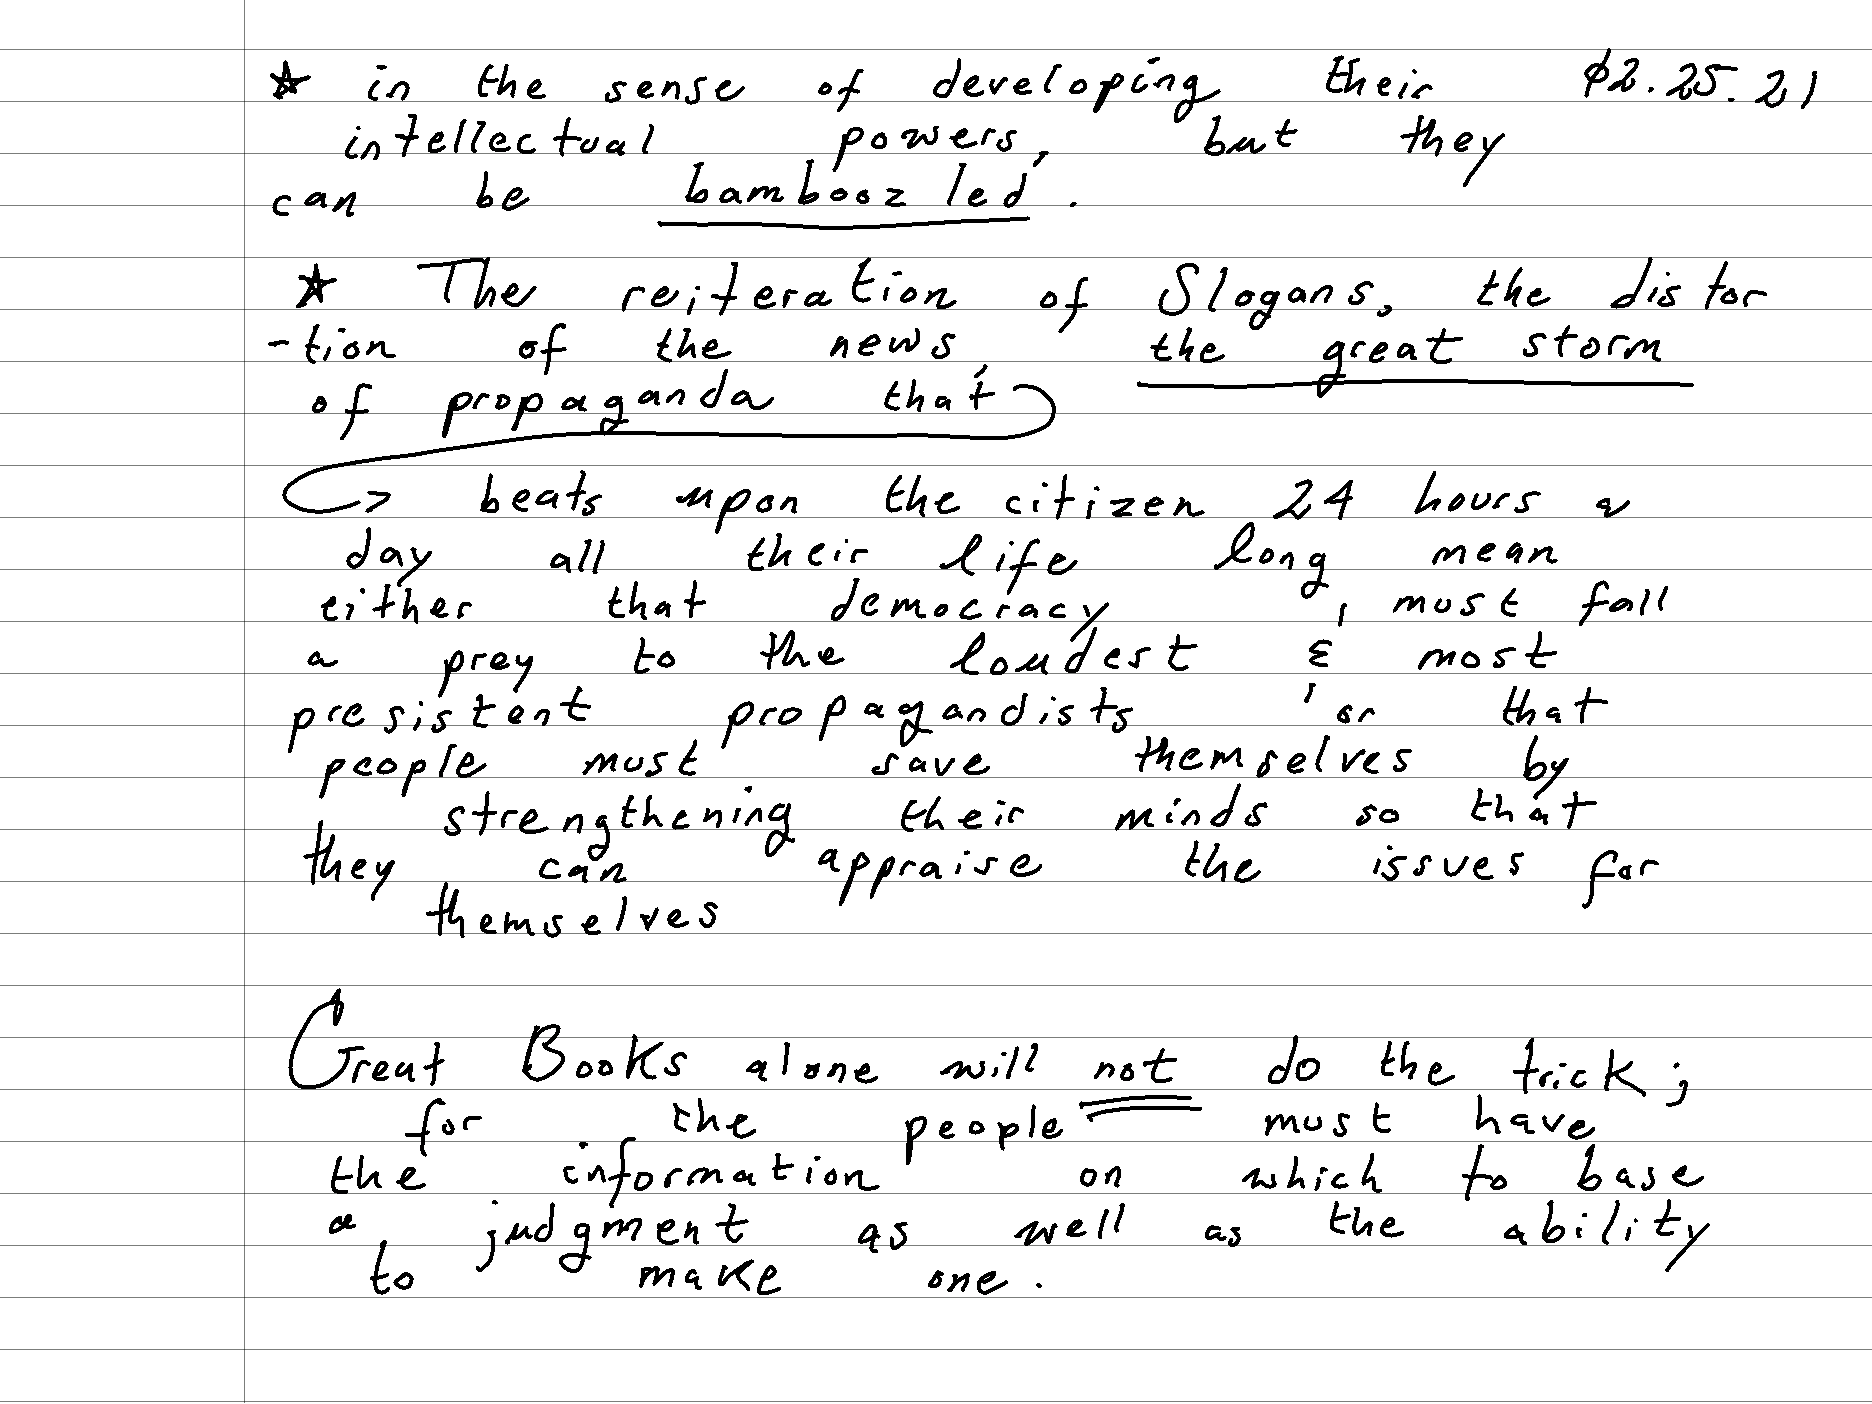 ☆ in the sense of developing their 02.25.21
intellectual powers, but they
can be bamboozled.
☆ The reiteration of Slogans, the distor
-tion of the news, the great storm
of propaganda that
beats upon the citizen 24 hours a
day all their life long mean
either that democracy, must fall
a prey to the loudest & most
presistent propagandists, or that
people must save themselves by
strengthening their minds so that
they can appraise the issues for
themselves
Great Books alone will not do the trick;
for the people must have
the information on which to base
a judgment as well as the ability
to make one.